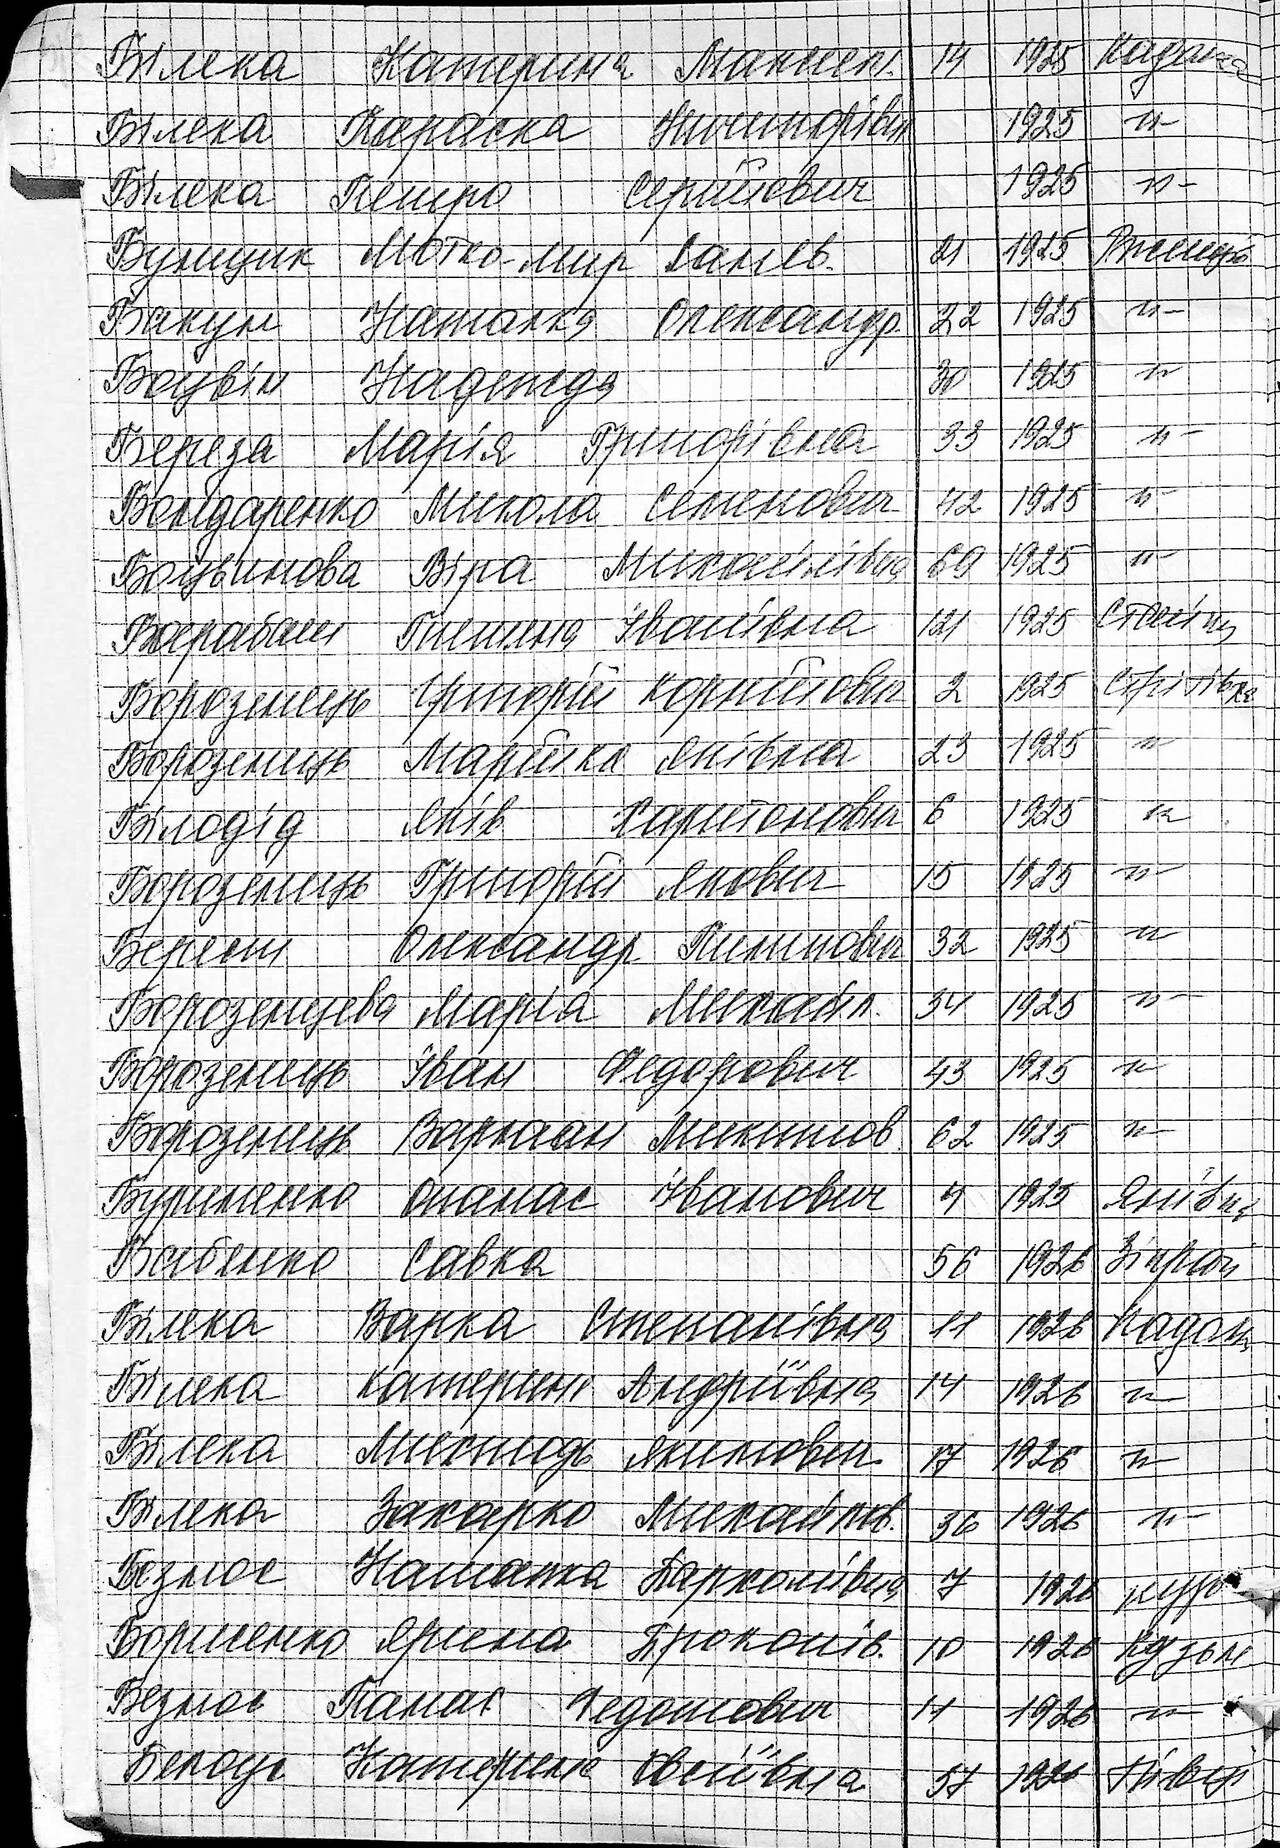 Білека Катерина Максим. 14 1925 Кадом
Білека Параска Никифорівн 1925 -"-
Білека Петро Сергійович 1925 -"-
Мотко-мир 21 1925
Бакун Наталка Олександр. 22 1925 -"-
Надежда 30 1925 "
Береза Марія Григорівна 33 1925 -"-
Бондаренко Микола Семенович 42 1925 -"-
Віра Михайлівна 69 1925 -"-
Барабаш Іванівна 121 1925
Борозенець Григорій Корнійович 2 1925 Стрітівка
Борозенець Марійка Яківна 23 1925 -"-
Білодід Яків Харитонович 6 1925 "
Борозенець Григорій Якович 15 1925 -"-
Берест Олександр Пилипович 32 1925 -"-
Борозенцева Марія Михайл. 34 1925 -"-
Борозенець Іван Федорович 43 1925 "
Борозенець Варлаан Микитов. 62 1925 -"-
Опанас Іванович 4 1925 Янівка
Бабенко Савка 56 1926
Білека Варка Степанівна 11 1926 Кадом
Білека Катерина Андріївна 14 1926 -"-
Білека Якимович 17 1926 -"-
Білека Захарко Михайлов. 36 1926 -"-
Безнос Наталка 7 1926
Борисенко Ярина Прокопів. 10 1926 Кузьм
Безнос Панас Федотович 11 1926 -"-
Катерина Овсіївна 57 1926